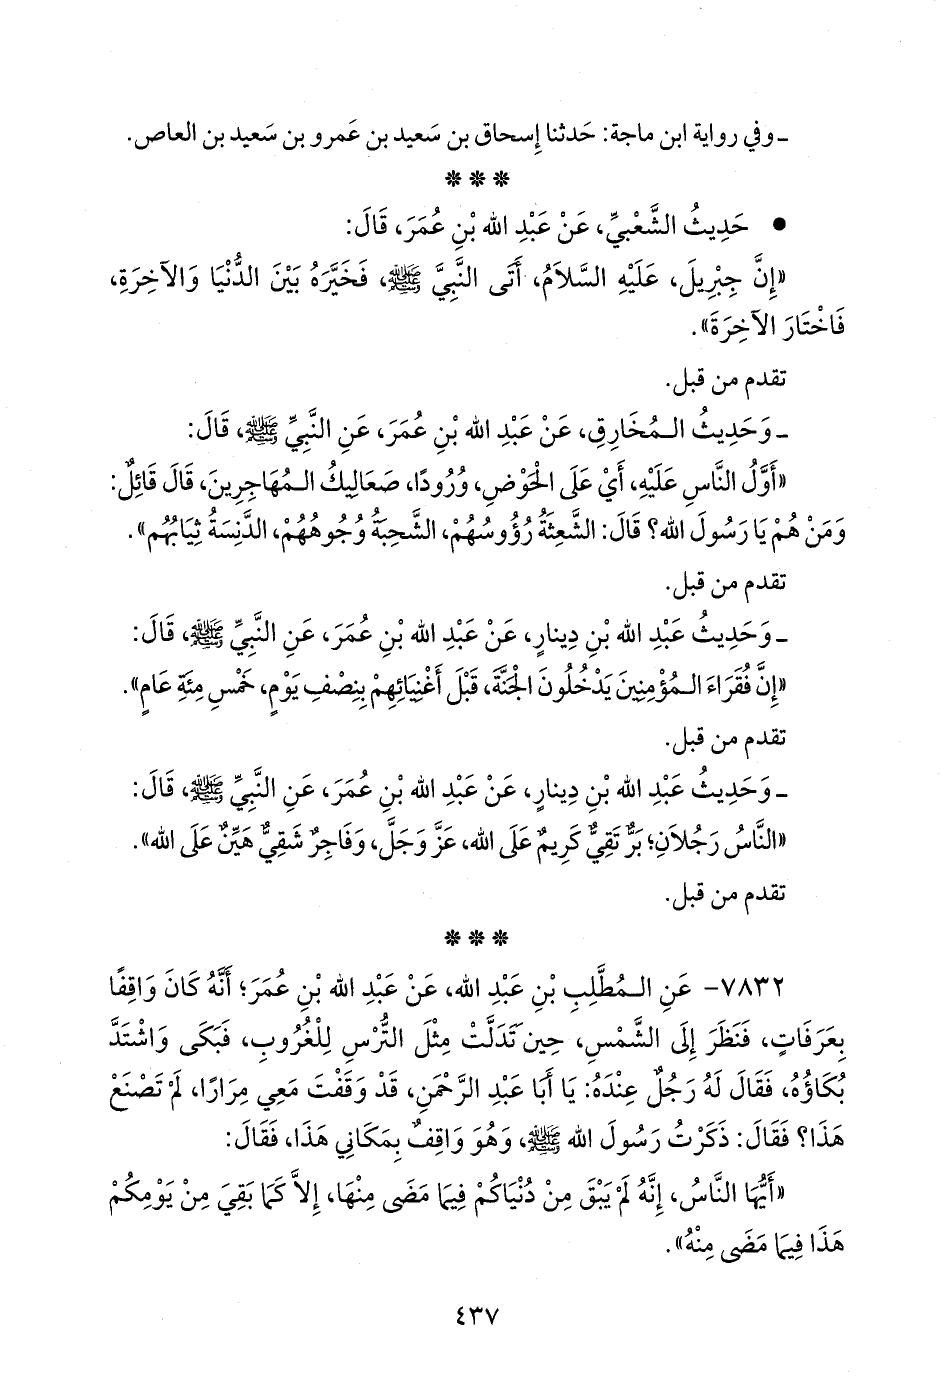 ـ وفي رواية ابن ماجة: حَدثنا إِسحاق بن سَعيد بن عَمرو بن سَعيد بن العاص.
❋ ❋ ❋
• حَدِيثُ الشَّعْبِيِّ، عَنْ عَبْدِ الله بْنِ عُمَرَ، قَالَ:
«إِنَّ جِبْرِيلَ، عَلَيْهِ السَّلاَمُ، أَتَى النَّبِيَّ ﷺ، فَخَيَّرَهُ بَيْنَ الدُّنْيَا وَالآخِرَةِ،
فَاخْتَارَ الآخِرَةَ».
تقدم من قبل.
ـ وَحَدِيثُ الـمُخَارِقِ، عَنْ عَبْدِ الله بْنِ عُمَرَ، عَنِ النَّبِيِّ ﷺ، قَالَ:
«أَوَّلُ النَّاسِ عَلَيْهِ، أَيْ عَلَى الْحَوْضِ، وُرُودًا، صَعَالِيكُ الـمُهَاجِرِينَ، قَالَ قَائِلٌ:
وَمَنْ هُمْ يَا رَسُولَ الله؟ قَالَ: الشَّعِثَةُ رُؤُوسُهُمْ، الشَّحِبَةُ وُجُوهُهُمْ، الدَّنِسَةُ ثِيَابُهُم».
تقدم من قبل.
ـ وَحَدِيثُ عَبْدِ الله بْنِ دِينارٍ، عَنْ عَبْدِ الله بْنِ عُمَرَ، عَنِ النَّبِيِّ ﷺ، قَالَ:
«إِنَّ فُقَرَاءَ الـمُؤْمِنِينَ يَدْخُلُونَ الْجَنَّةَ، قَبْلَ أَغْنِيَائِهِمْ بِنِصْفِ يَوْمٍ، خَمْسِ مِئَةِ عَامٍ».
تقدم من قبل.
ـ وَحَدِيثُ عَبْدِ الله بْنِ دِينارٍ، عَنْ عَبْدِ الله بْنِ عُمَرَ، عَنِ النَّبِيِّ ﷺ، قَالَ:
«النَّاسُ رَجُلاَنِ؛ بَرٌّ تَقِيٌّ كَرِيمٌ عَلَى الله، عَزَّ وَجَلَّ، وَفَاجِرٌ شَقِيٌّ هَيِّنٌ عَلَى الله».
تقدم من قبل.
❋ ❋ ❋
٧٨٣٢- عَنِ الـمُطَّلِبِ بْنِ عَبْدِ الله، عَنْ عَبْدِ الله بْنِ عُمَرَ؛ أَنَّهُ كَانَ وَاقِفًا
بِعَرَفَاتٍ، فَنَظَرَ إِلَى الشَّمْسِ، حِينَ تَدَلَّتْ مِثْلَ التُّرْسِ لِلْغُرُوبِ، فَبَكَى وَاشْتَدَّ
بُكَاؤُهُ، فَقَالَ لَهُ رَجُلٌ عِنْدَهُ: يَا أَبَا عَبْدِ الرَّحْمَنِ، قَدْ وَقَفْتَ مَعِي مِرَارًا، لَمْ تَصْنَعْ
هَذَا؟ فَقَالَ: ذَكَرْتُ رَسُولَ الله ﷺ، وَهُوَ وَاقِفٌ بِمَكَانِي هَذَا، فَقَالَ:
«أَيُّهَا النَّاسُ، إِنَّهُ لَمْ يَبْقَ مِنْ دُنْيَاكُمْ فِيمَا مَضَى مِنْهَا، إِلاَّ كَمَا بَقِيَ مِنْ يَوْمِكُمْ
هَذَا فِيمَا مَضَى مِنْهُ».
٤٣٧